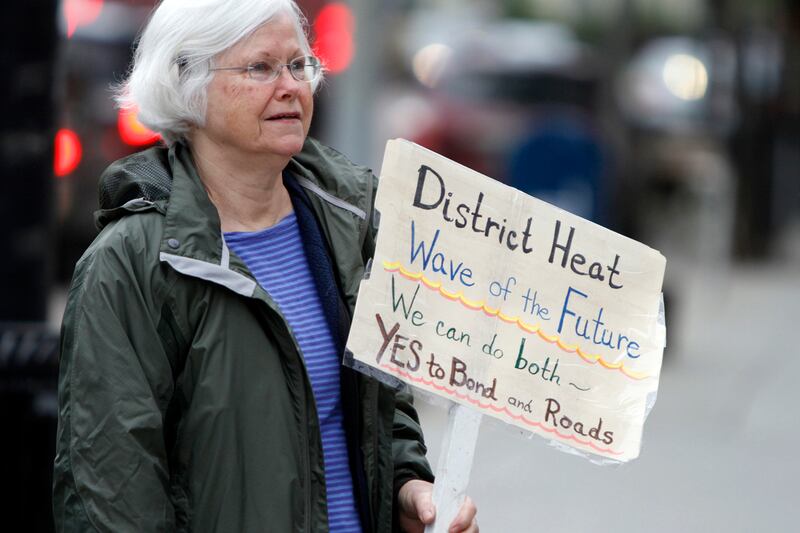 District Heat
Wave of the Future
We can do both ~
YES to Bond and Roads